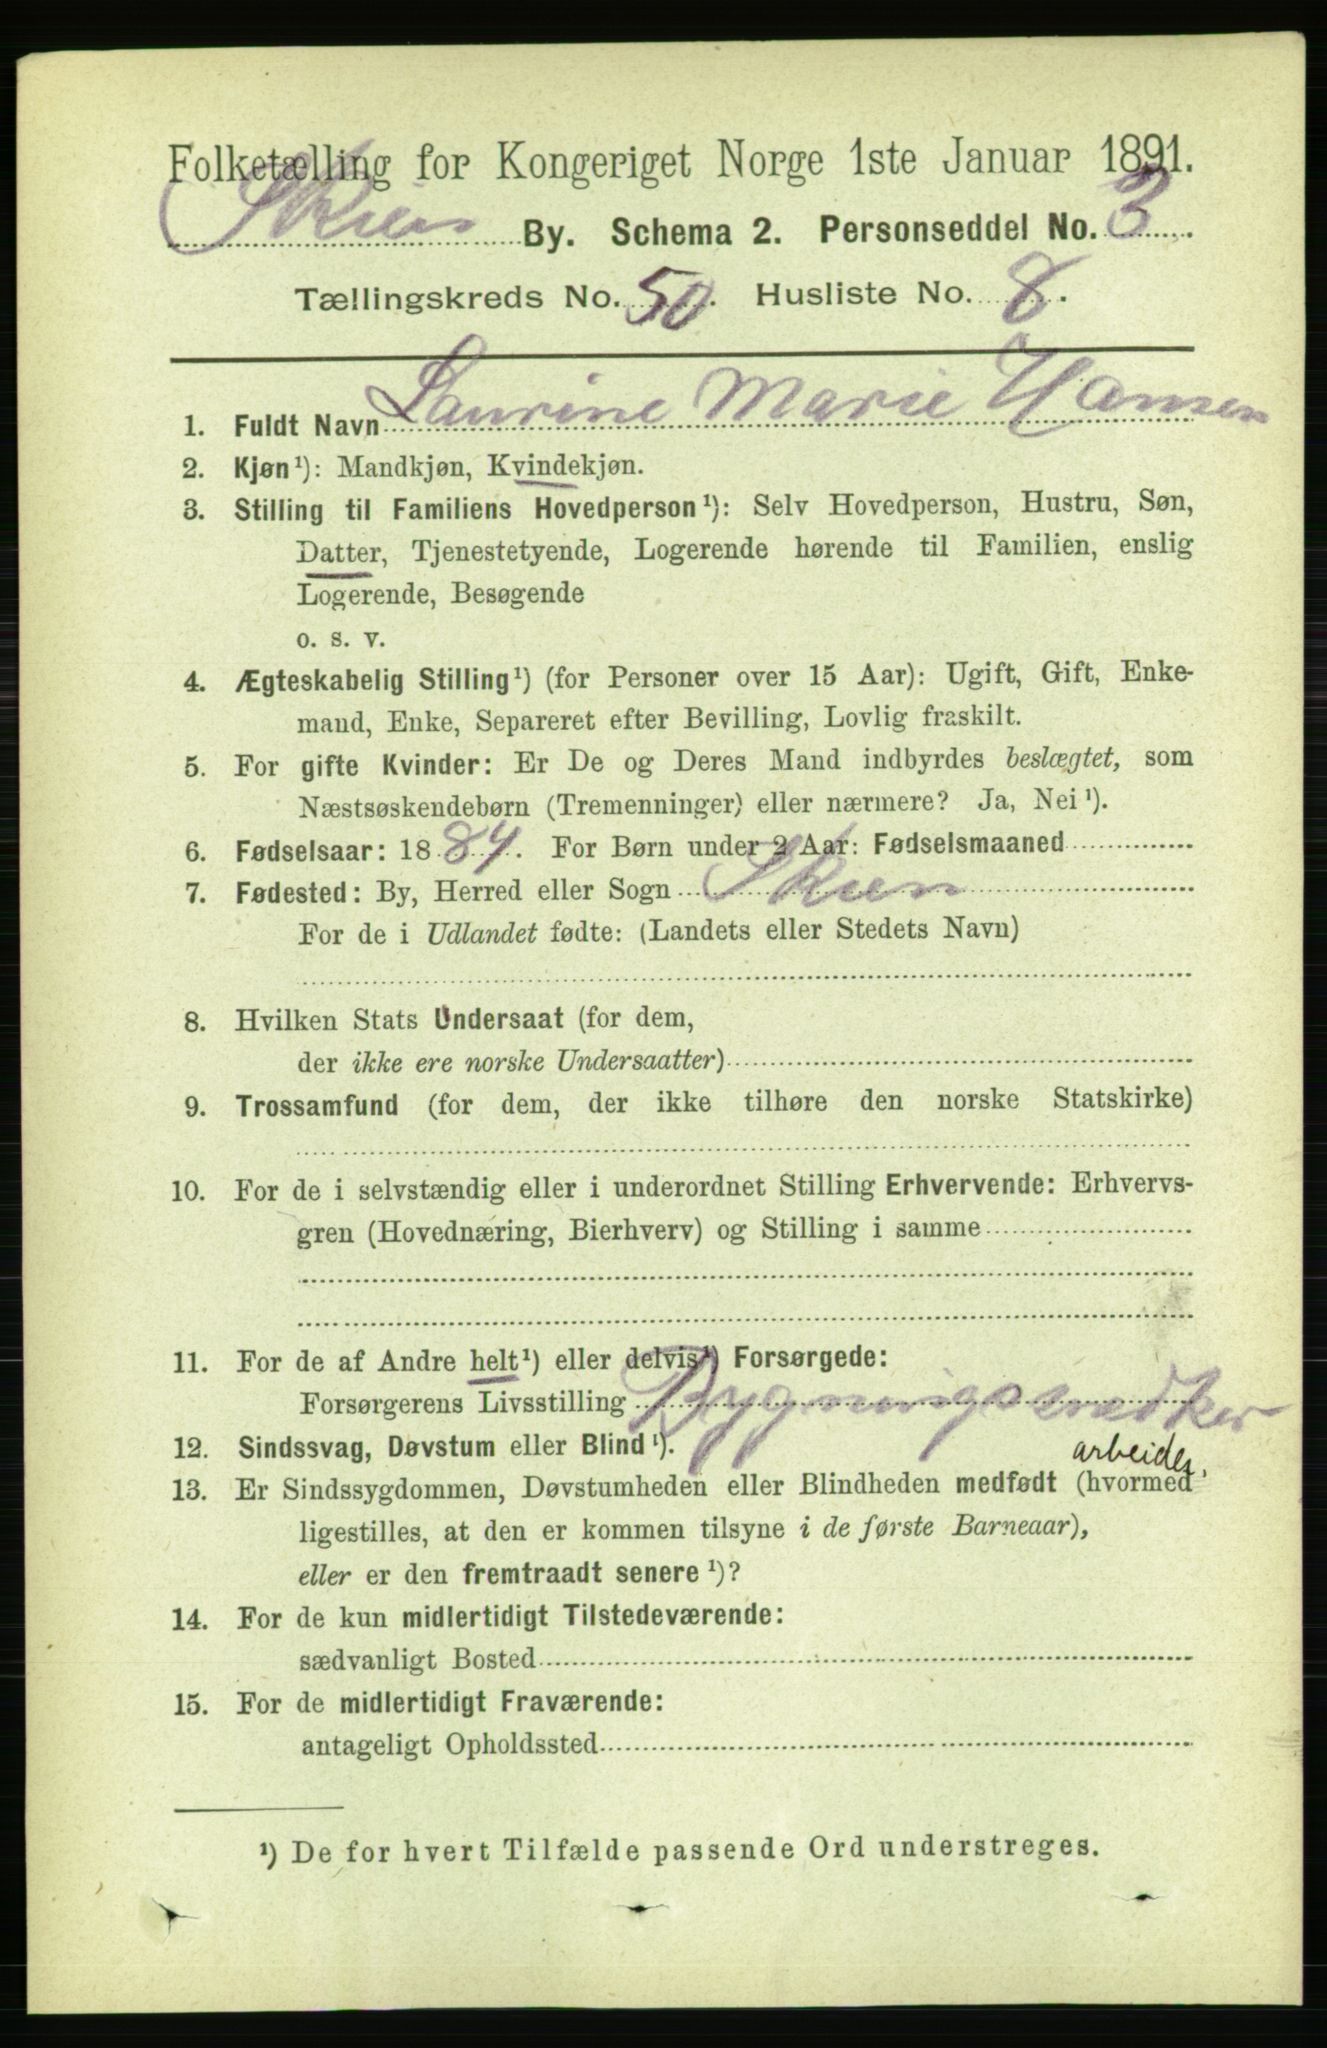 Folketælling for Kongeriget Norge 1ste Januar 1891.
Skien By. Schema 2. Personseddel No. 3.
Tællingskreds No. 50. Husliste No. 8.
1. Fuldt Navn Laurine Marie Hansen
2. Kjøn¹): Mandkjøn, Kvindekjøn.
3. Stilling til Familiens Hovedperson¹): Selv Hovedperson, Hustru, Søn,
Datter, Tjenestetyende, Logerende hørende til Familien, enslig
Logerende, Besøgende
o. s. v.
4. Ægteskabelig Stilling¹) (for Personer over 15 Aar): Ugift, Gift, Enke-
mand, Enke, Separeret efter Bevilling, Lovlig fraskilt.
5. For gifte Kvinder: Er De og Deres Mand indbyrdes beslægtet, som
Næstsøskendebørn (Tremenninger) eller nærmere? Ja, Nei¹).
6. Fødselsaar: 1884. For Børn under 2 Aar: Fødselsmaaned
7. Fødested: By, Herred eller Sogn Skien
For de i Udlandet fødte: (Landets eller Stedets Navn)
8. Hvilken Stats Undersaat (for dem,
der ikke ere norske Undersaatter)
9. Trossamfund (for dem, der ikke tilhøre den norske Statskirke)
10. For de i selvstændig eller i underordnet Stilling Erhvervende: Erhvervs-
gren (Hovednæring, Bierhverv) og Stilling i samme
11. For de af Andre helt¹) eller delvis¹) Forsørgede:
Forsørgerens Livsstilling Bygningssnedker
arbeider.
12. Sindssvag, Døvstum eller Blind¹).
13. Er Sindssygdommen, Døvstumheden eller Blindheden medfødt (hvormed
ligestilles, at den er kommen tilsyne i de første Barneaar),
eller er den fremtraadt senere¹)?
14. For de kun midlertidigt Tilstedeværende:
sædvanligt Bosted
15. For de midlertidigt Fraværende:
antageligt Opholdssted
¹) De for hvert Tilfælde passende Ord understreges.